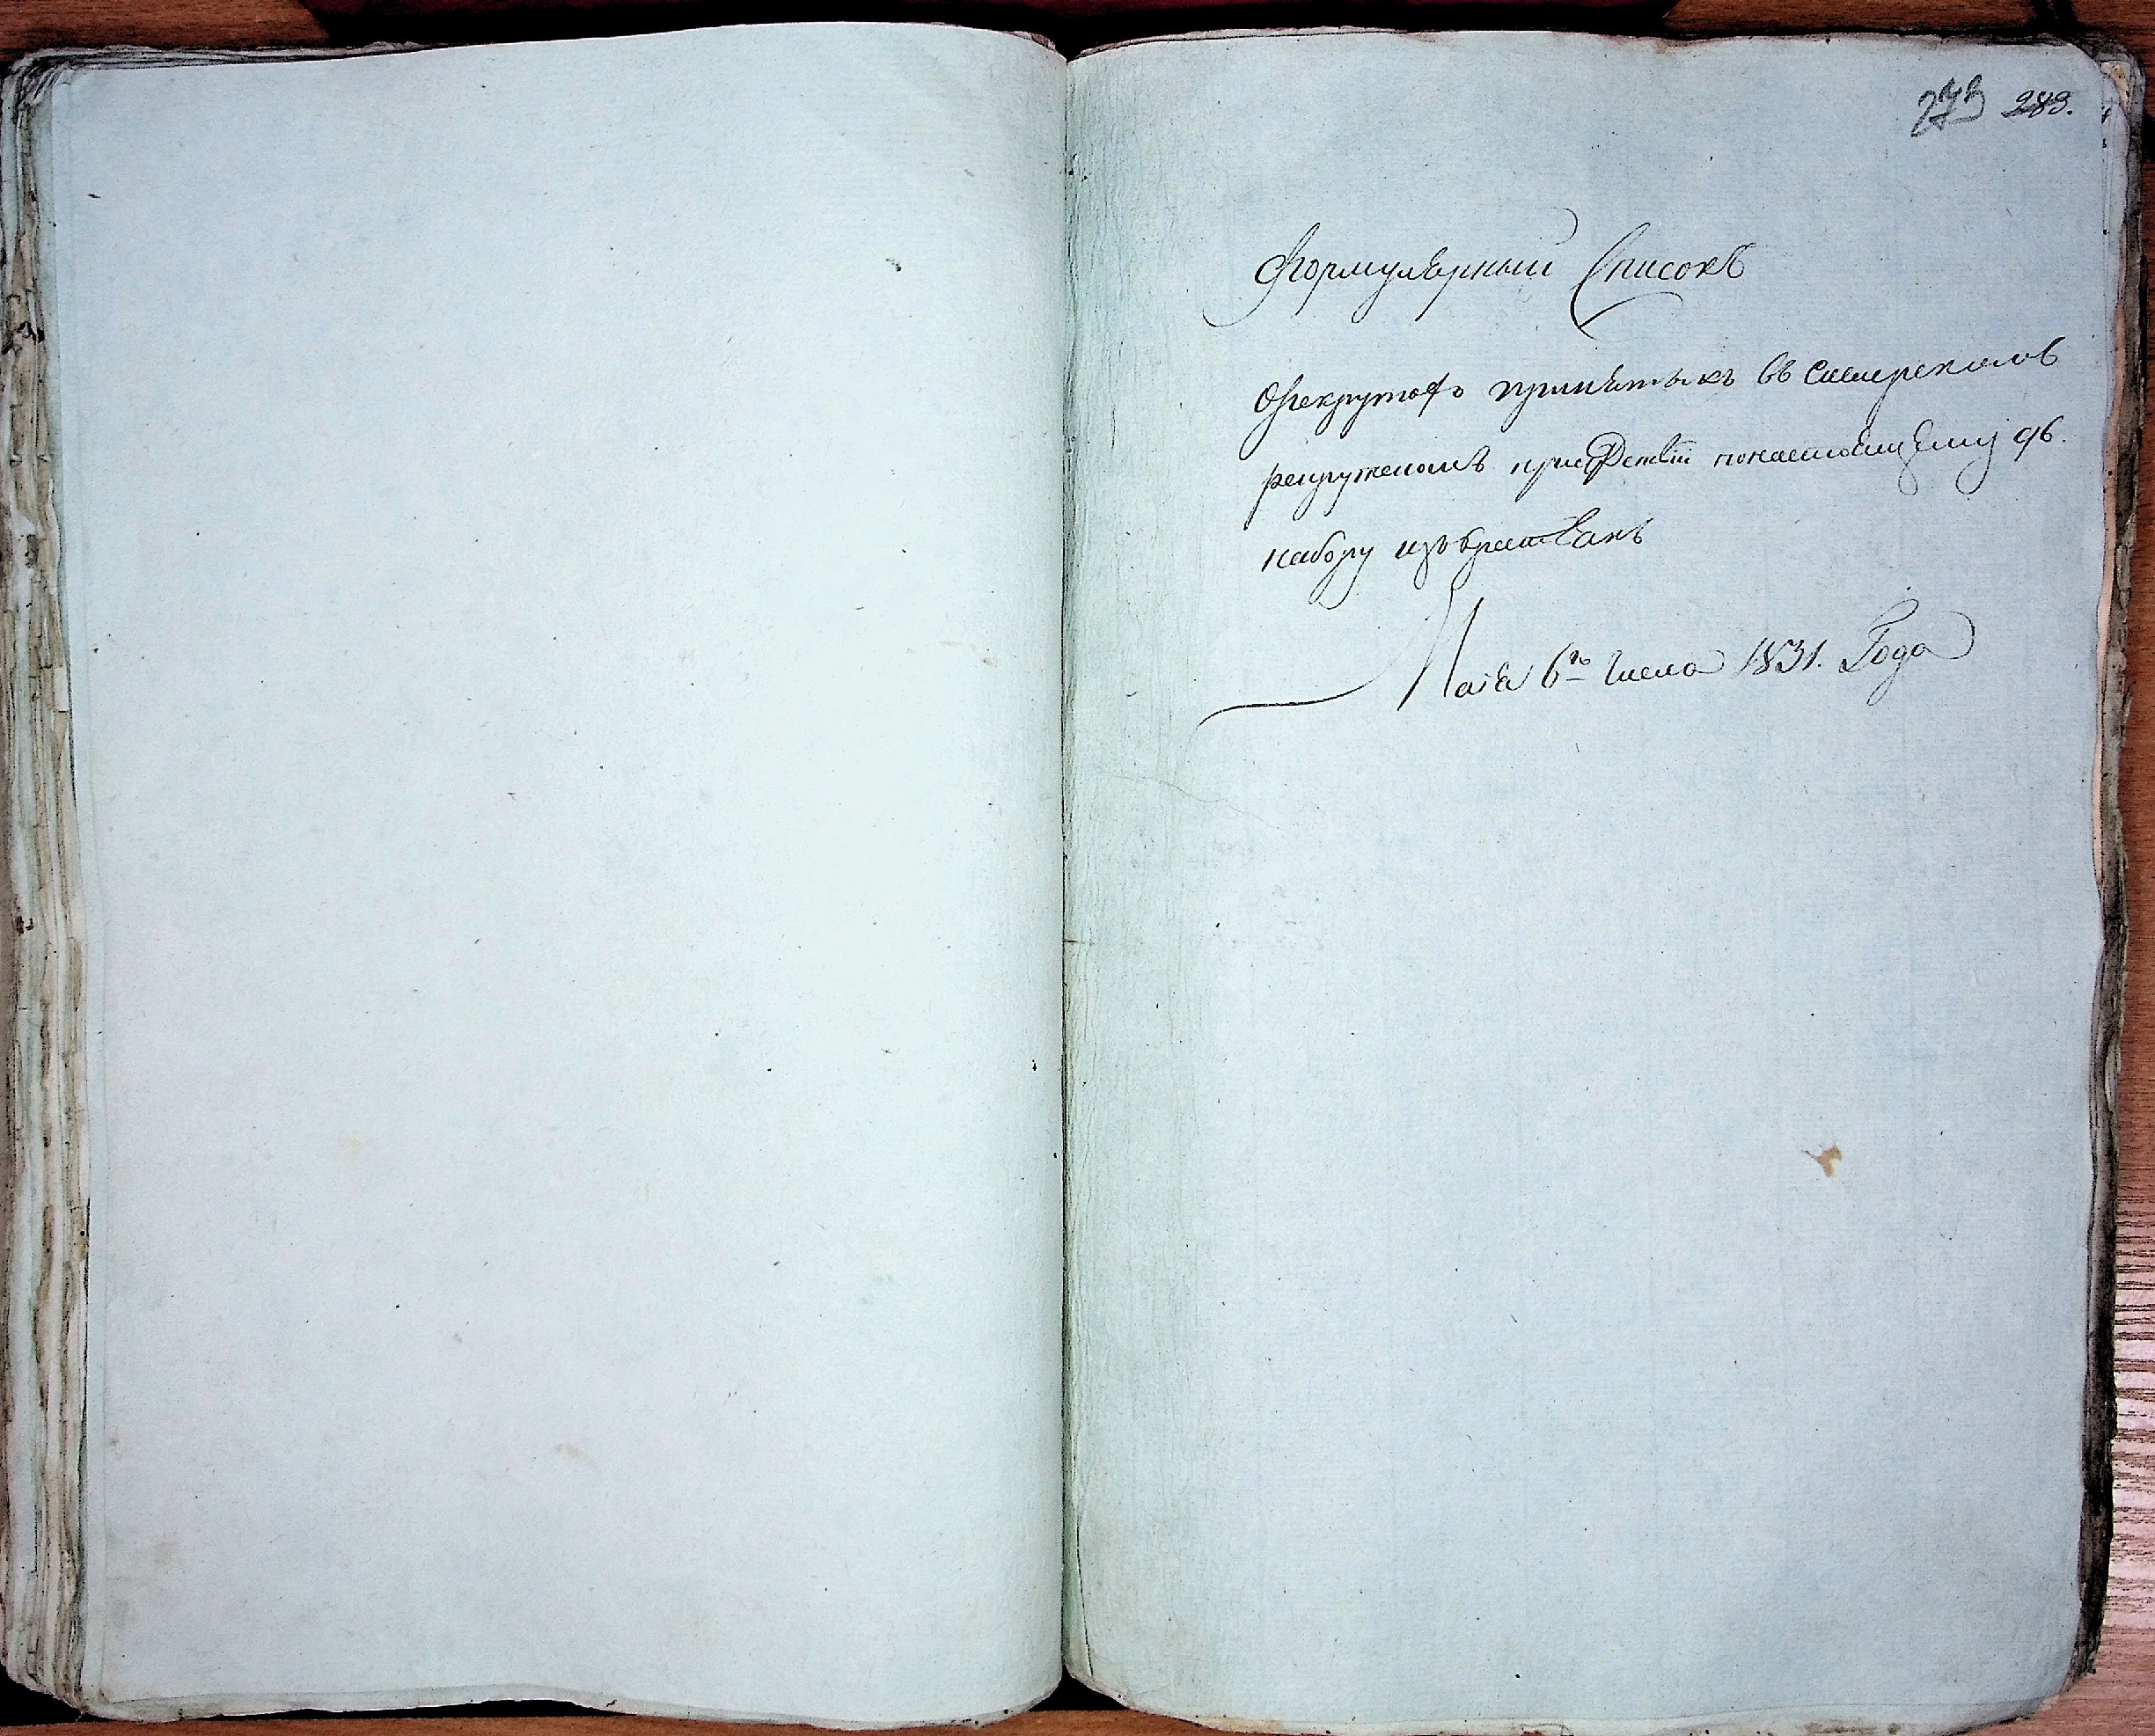 273 283.
Формулярныи Списокъ
Орекрутахъ принятыхъ въ Симбирскомъ
рекрутскомъ присудствіи понастоящему 96.
набору изъ
Маія 6го числа 1831. Года